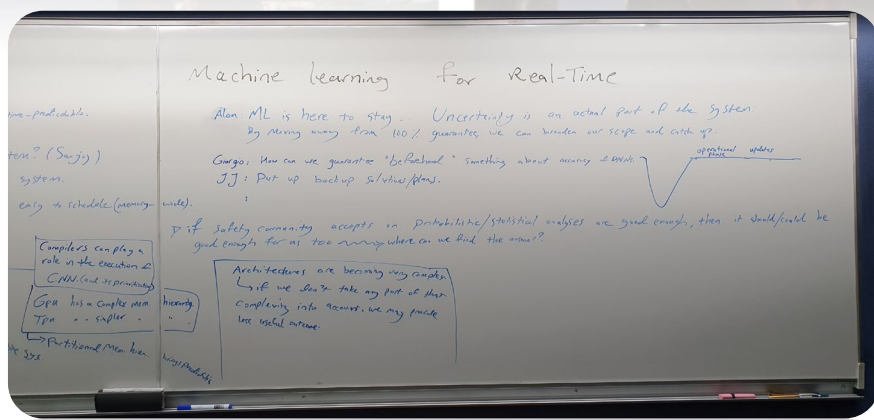 Machine Learning for Real-Time
Alan: ML is here to stay. Uncertainty is an actual part of the system
By moving away from 100% guarantee, we can broaden our scope and catch up.
Giorgio: How can we guarantee "beforehand" something about accuracy DNNs.
operational updates
phase
JJ: Put up backup solutions/plans.
:
if safety community accepts on probabilistic/statistical analyses are good enough, then it should/could be
good enough for us too where can we find the answer?
Architectures are becoming very complex
if we don't take any part of that
complexity into account, we may provide
less useful outcome.
time-predictable.
(Sanjoy)
system.
easy to schedule (memory-wide).
Compilers can play a
role in the execution of
CNN.
Gpu has a complex mem. hierarchy.
Tpu " " simpler " " .
Partitioned mem hier
sys